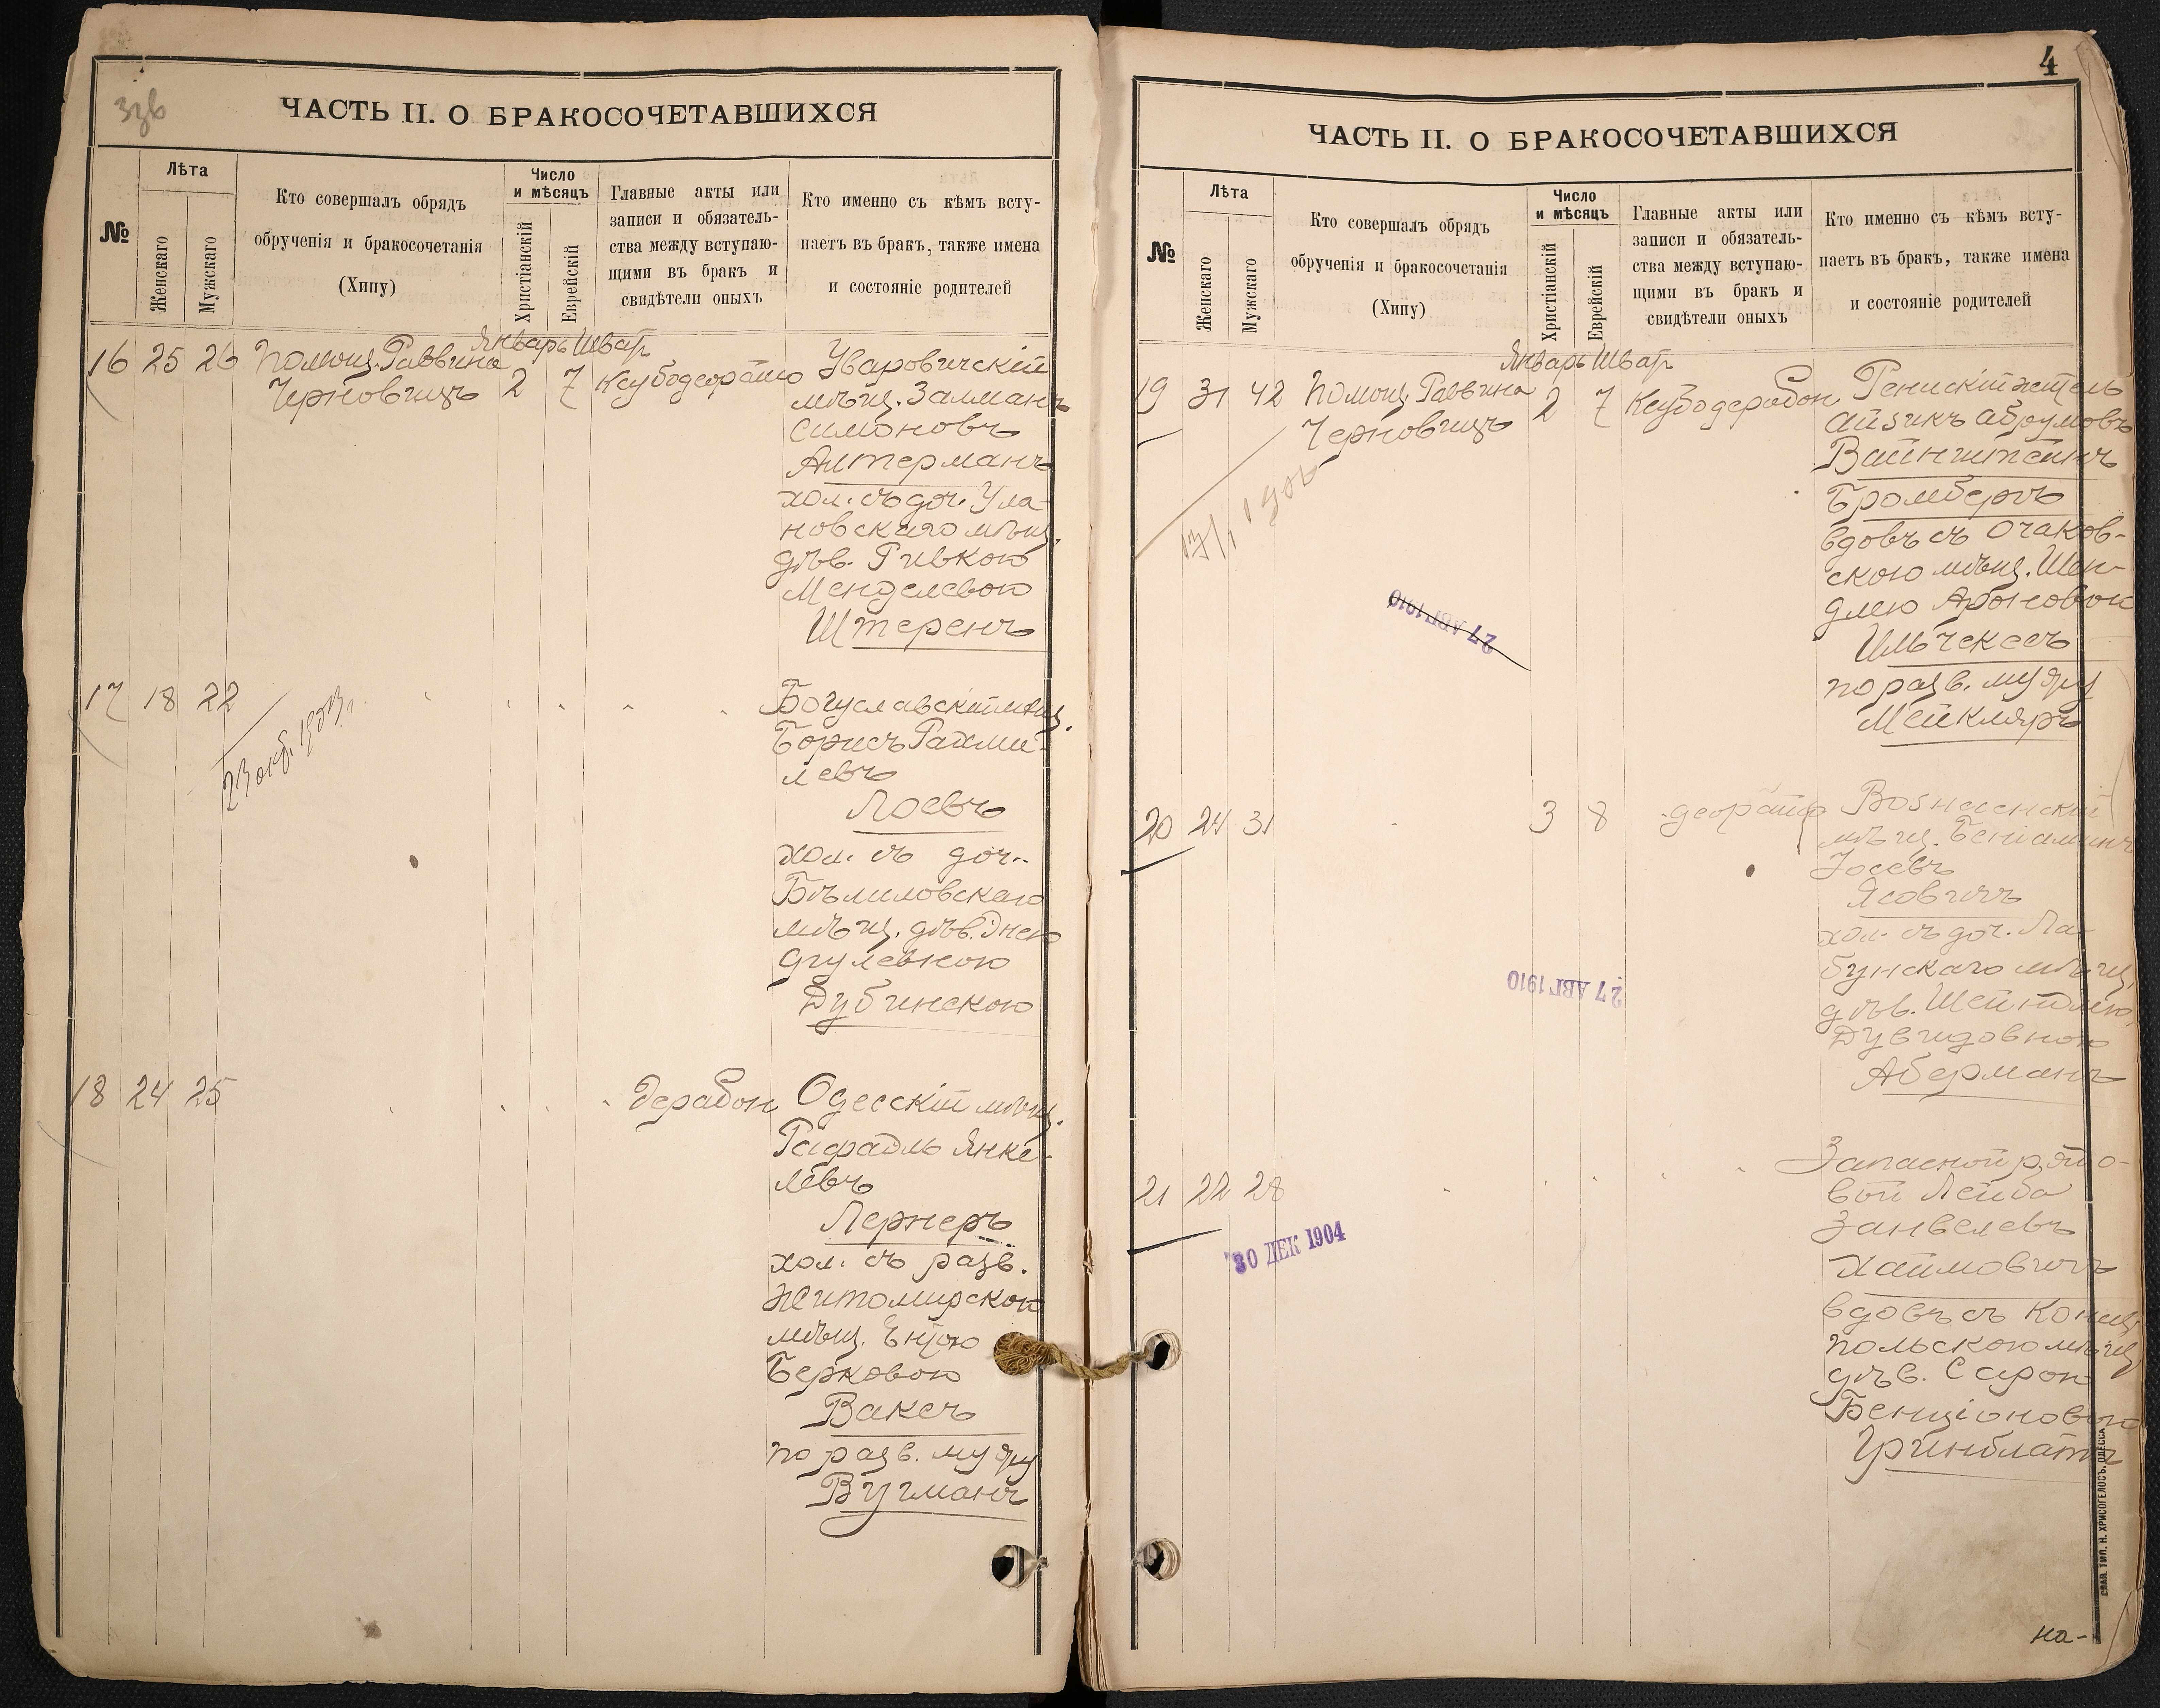 Ззв
ЧАСТЬ II. О БРАКОСОЧЕТАВШИХСЯ
№
Лѣта
Женскаго
Мужскаго
Кто совершалъ обрядъ
обрученія и бракосочетанія
(Хипу)
Число
и мѣсяцъ
Христіанскій
Еврейскій
Главные акты или
записи и обязатель-
ства между вступаю-
щими въ бракъ и
свидѣтели оныхъ
Кто именно съ кѣмъ всту-
паетъ въ бракъ, также имена
и состояніе родителей
Январь Шватъ
16 25 26 Помощ. Раввина 2 7 Уваровичскій
Черновицъ
мѣщ. Залманъ
Симоновъ
Антерманъ
хол. съ доч. Ула-
новскаго мѣщ.
дѣв. Ривкою
Менделевою
Штеренъ
17 18 22 Богуславскій мѣщ.
23 окт. 1903 г.
Борисъ Рахми-
левъ
Лоевъ
хол. съ доч.
Бѣлиловскаго
мѣщ. дѣв. Энею
Дубинскою
18 24 25 Дерабон Одесскій мѣщ.
Рафаэль Янке-
левъ
Лернеръ
хол. съ разв.
Житомирскою
мѣщ. Энтою
Берковою
Ваксъ
по разв. мужу
Вугманъ
4
ЧАСТЬ II. О БРАКОСОЧЕТАВШИХСЯ
№
Лѣта
Женскаго
Мужскаго
Кто совершалъ обрядъ
обрученія и бракосочетанія
(Хипу)
Число
и мѣсяцъ
Христіанскій
Еврейскій
Главные акты или
записи и обязатель-
ства между вступаю-
щими въ бракъ и
свидѣтели оныхъ
Кто именно съ кѣмъ всту-
паетъ въ бракъ, также имена
и состояніе родителей
Январь Шватъ
19 31 42 Помощ. Раввина 2 7 Ксубодерабон Ренискій житель
Черновицъ
Айзикъ Абрумовъ
Вайнштейнъ
Бромбергъ
вдовъ съ Очаков-
скою мѣщ. Шен-
длею Ароновою
Ильчексъ
по разв. мужу
Мейкляръ
27 АВГ 1910
20 24 31 3 8 деорайто Вознесенскій
мѣщ. Беніаминъ
Іосевъ
Ясовичъ
хол. съ доч. Ла-
бунскаго мѣщ.
дѣв. Шейндлею
Дувидовною
Аберманъ
27 АВГ 1910
21 22 28 Запасной рядо-
вой Лейба
Занвелевъ
Хаимовичъ
вдовъ съ Конец-
польскою мѣщ.
дѣв. Сурою
Бенціоновою
Гринблатъ
30 ДЕК 1904
СЛАВ. ТИП. Н. ХРИСОГЕЛОСЪ, ОДЕССА
на-